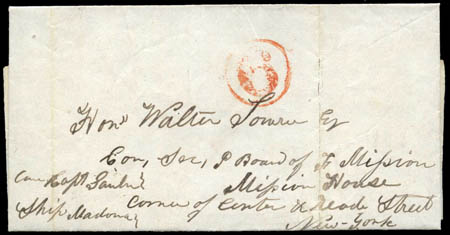 Honl Walter Lowrie Esq
Cor, Sec, P Board of F Mission
Care Capt
Mission House
Ship Madona
Corner of Center & Reade Street
New-York